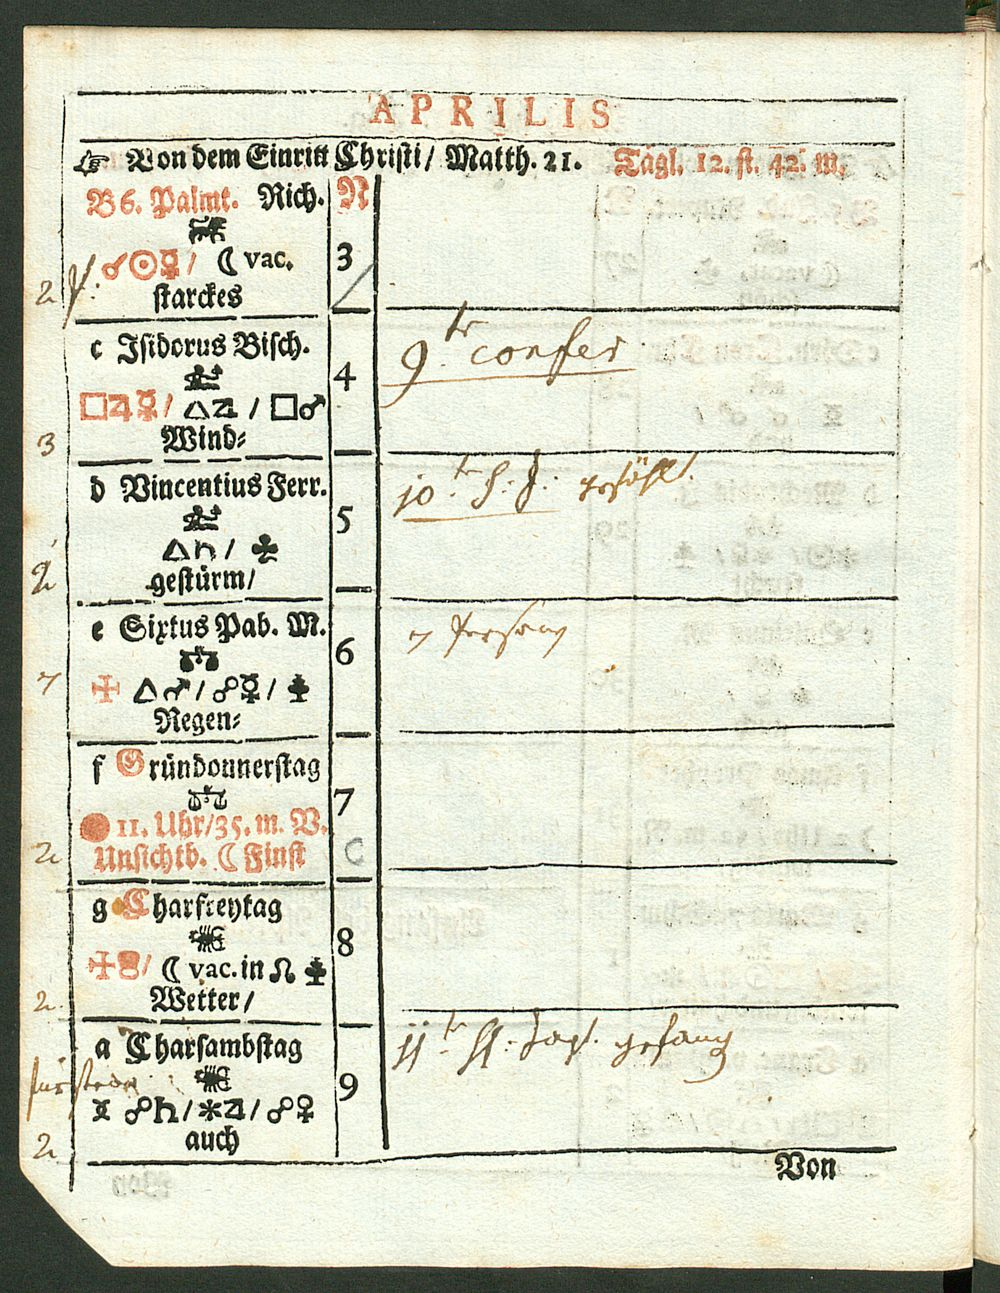 APRILIS
☞ Von dem Einritt Christi / Matth. 21. Tägl. 12. st. 42. m.
B 6. Palmt. Rich. N
☌☉☿ / ☾ vac. 3
2
starckes
c Isidorus Bisch.
9.tr confer
4
□♃☿ / △♃ / □♂
3 Wind⸗
d Vincentius Ferr.
10.tr
5
△♄ / ♣
2 gestürm /
e Sixtus Pab. M.
6
7
✠ △♂ / ☍☿ / ♣
Regen⸗
f Gründonnerstag
7
● 11. Uhr / 35. m. V.
2 Unsichtb. ☾ Finst
g Charfreytag
8
☾ vac. in ☊
2. Wetter /
a Charsambstag
11.tr
9
☍♄ / ⚹♃ / ☍♀
2 auch
Von